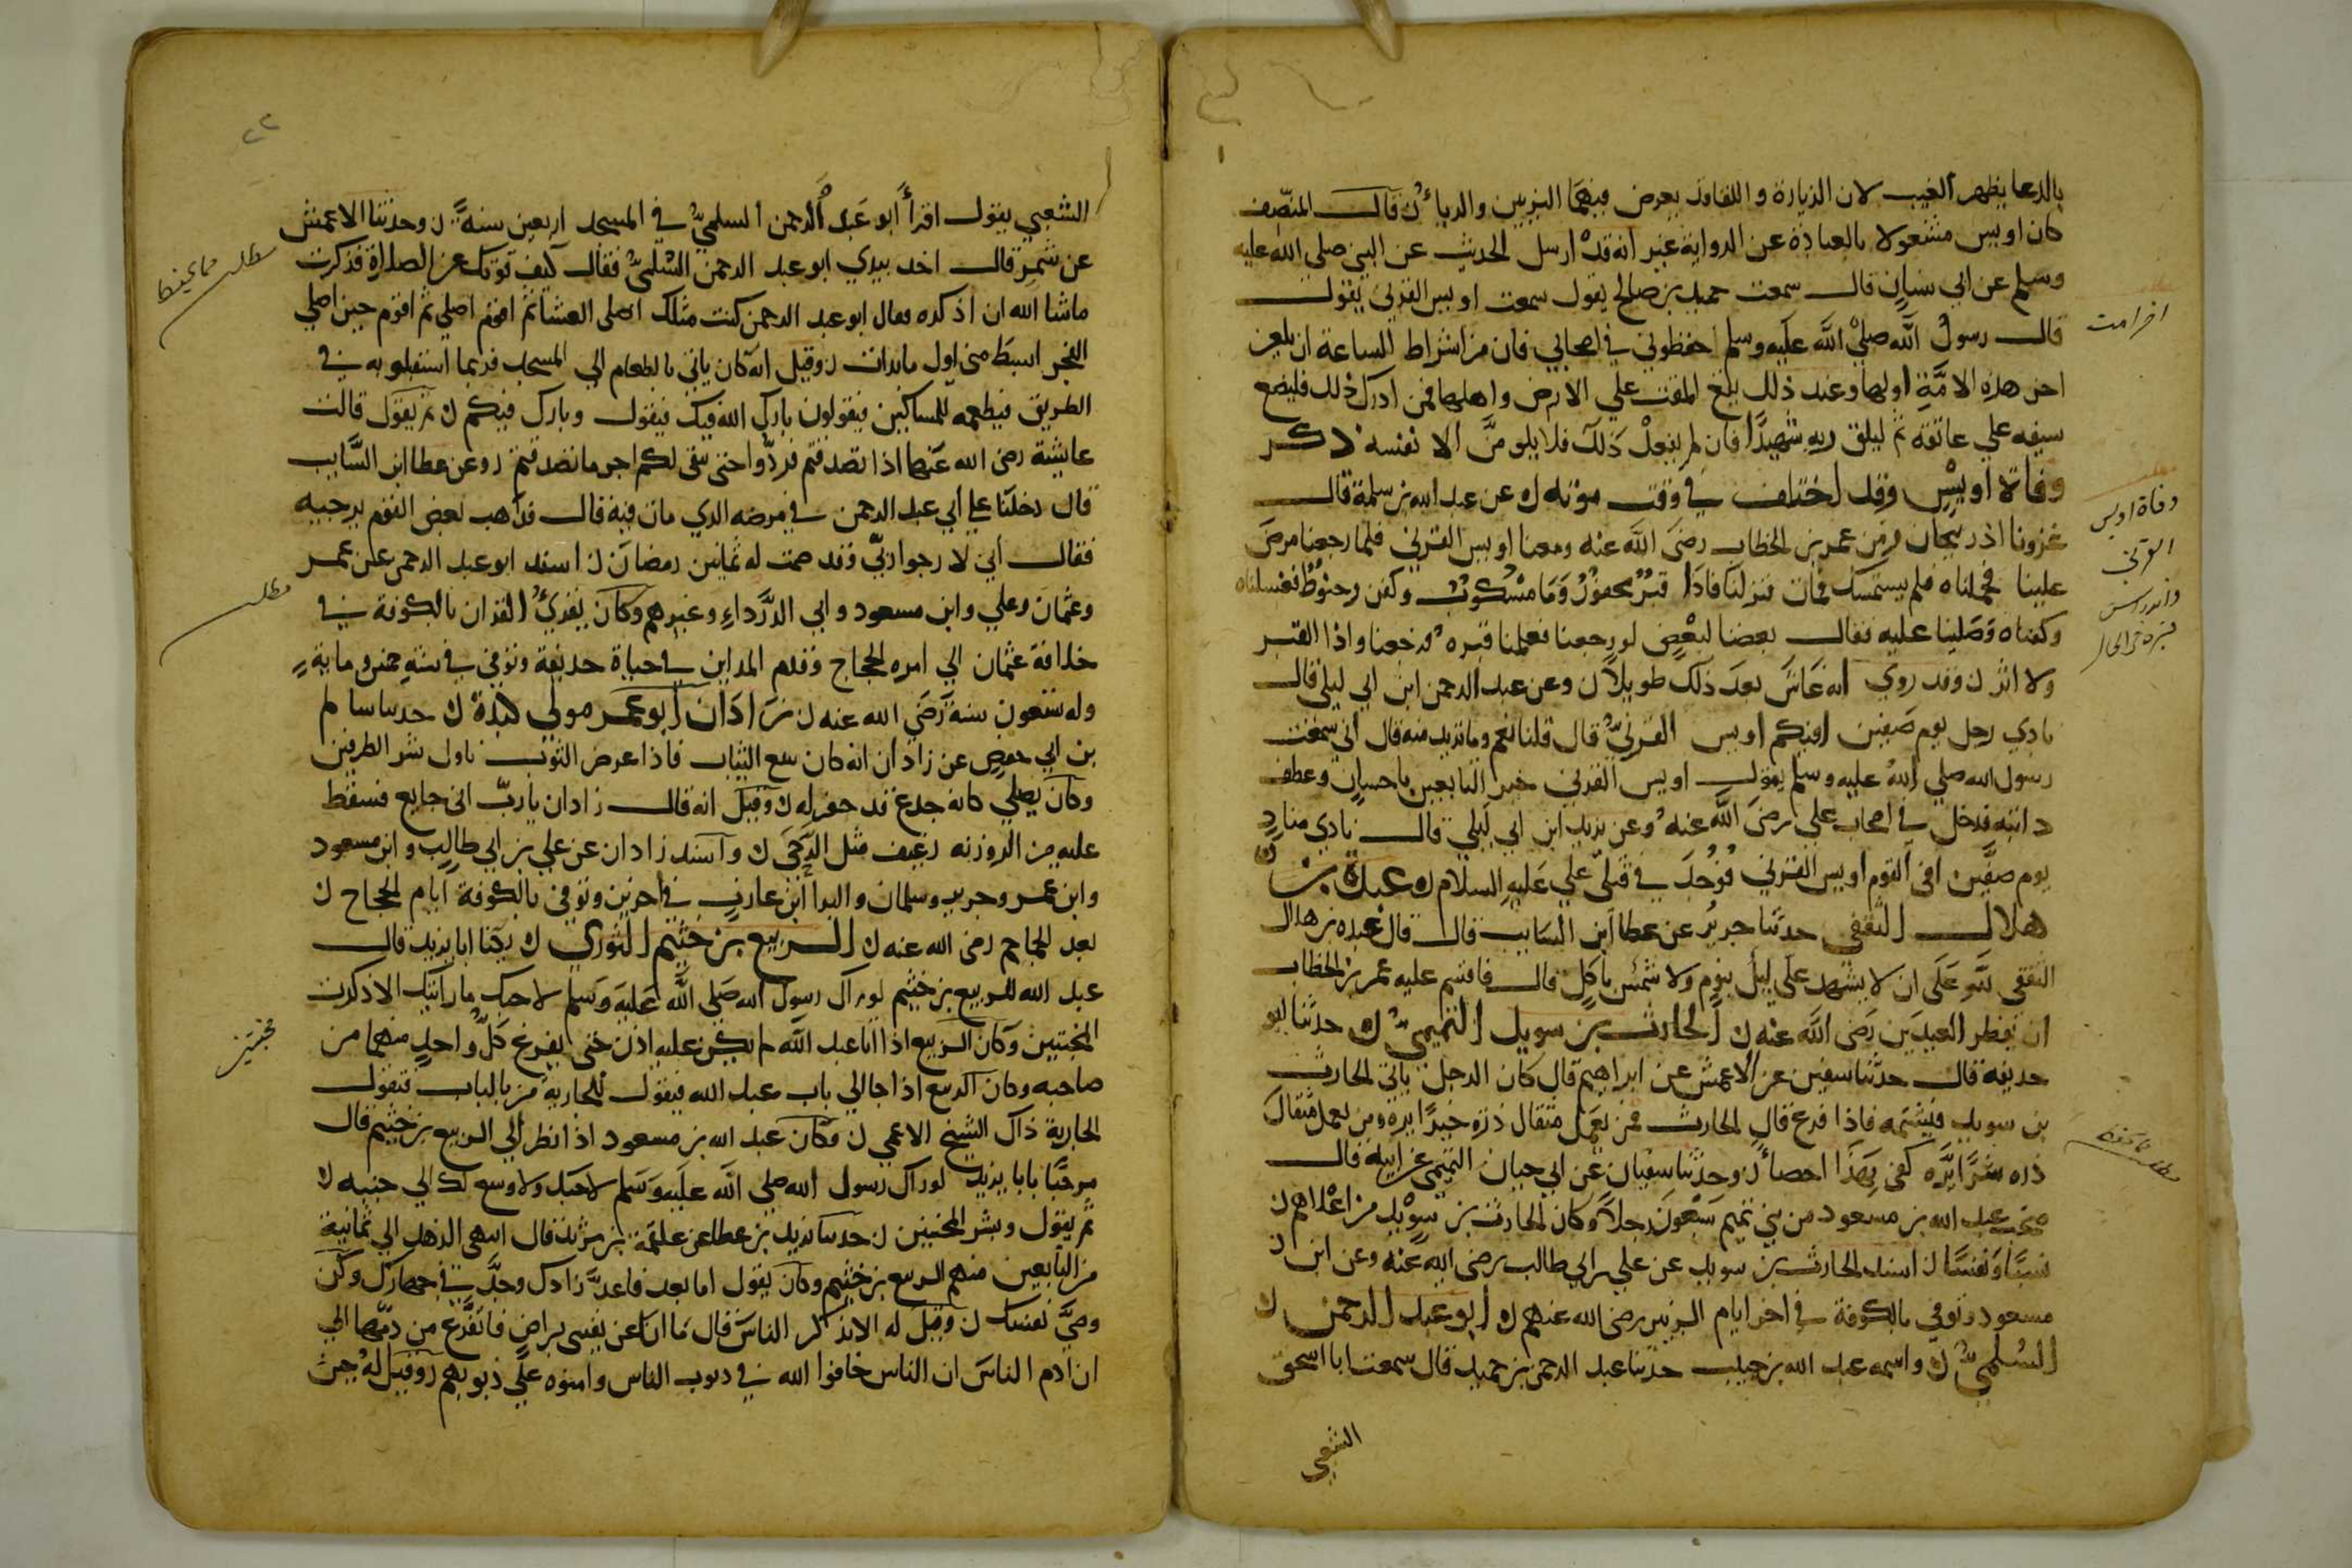 بالدعا بظهر الغيب لان الزيارة واللقا قد يعرض فيهما التزيين والرياء ن قال المصنف
كان اويس مشغولا بالعبادة عن الرواية غير انه قد ارسل الحديث عن النبي صلى الله عليه
وسلم عن ابي سنان قال سمعت حميد بن صالح يقول سمعت اويس القرني يقول
قال رسول الله صلي الله عليه وسلم احفظوني في اصحابي فان من اشراط الساعة ان يلعن
اخر هذه الامة اولها وعند ذلك يقع المقت علي الارض واهلها فمن ادرك ذلك فليضع
سيفه علي عاتقه ثم ليلق ربه شهيدا فان لم يفعل ذلك فلا يلومن الا نفسه ذكر
وفاة اويس وقد اختلف في وقت موته ن عن عبد الله بن سلمة قال
غزونا اذربيجان زمن عمر بن الخطاب رضي الله عنه ومعنا اويس القرني فلما رجعنا مرض
علينا فحملناه فلم يستمسك فمات فنزلنا فاذا قبر محفور وما مسكوب وكفن وحنوط فغسلناه
وكفناه وصلينا عليه فقال بعضنا لبعض لو رجعنا فعلمنا قبره فرجعنا واذا القبر
ولا اثر ن وقد روي انه عاش بعد ذلك طويلا ن وعن عبد الرحمن ابن ابي ليلى قال
نادي رجل يوم صفين افيكم اويس القرني قال قلنا نعم وما تريد منه قال اني سمعت
رسول الله صلي الله عليه وسلم يقول اويس القرني خير التابعين باحسان وعطف
دابته فدخل في اصحاب علي رضي الله عنه وعن يزيد ابن ابي ليلي قال نادي مناد
يوم صفين افي القوم اويس القرني فوجد في قتلى علي عليه السلام ن عبدة بن
هلال الثقفي حدثنا جرير عن عطا ابن السايب قال قال عبده بن هلال
الثقفي لله على ان لا يشهد علي ليل بنوم ولا شمس باكل قال فاقسم عليه عمر بن الخطاب
ان يفطر العيدين رضي الله عنه ن الحارث بن سويد التميمي ن حدثنا ابو
حذيفة قال حدثنا سفين عن الاعمش عن ابراهيم قال كان الرجل ياتي الحارث
بن سويد فيشتمه فاذا فرغ قال الحارث فمن يعمل مثقال ذرة خيرا يره ومن يعمل مثقال
ذره شرا يره كفى بهذا احصاء ن وحدثنا سفيان عن ابي حيان التيمي عن ابيه قال
صحب عبد الله بن مسعود من بني تميم سبعون رجلا وكان الحارث بن سويد من اعلاهم ن
نفسا ن اسند الحارث بن سويد عن علي بن ابي طالب رضي الله عنه وعن ابن
مسعود وتوفي بالكوفة في اخر ايام ابن الزبير رضي الله عنهم ن ابو عبد الرحمن
السلمي ن واسمه عبد الله بن حبيب حدثنا عبد الرحمن بن حميد قال سمعت ابا اسحق
الشعبي
اخر امت
وفاة اويس
القرني
الشعبي يقول اقرأ ابو عبد الرحمن السلمي في المسجد اربعين سنة ن وحدثنا الاعمش
عن شمر قال اخذ بيدي ابو عبد الرحمن السلمي فقال كيف قوتك عن الصلاة فذكرت
ماشا الله ان اذكره فقال ابو عبد الرحمن كنت مثلك اصلى العشا ثم اقوم اصلي ثم اقوم حين اصلي
الفجر انشط مني اول ما بدات ن وقيل انه كان ياتي بالطعام الي المسجد فربما استقبلوه به في
الطريق فيطعمه المساكين فيقولون بارك الله فيك فيقول وبارك فيكم ن ثم يقول قالت
عايشة رضى الله عنها اذا تصدقتم فردوا حتى يبقى لكم اجر ما تصدقتم ن وعن عطا ابن السايب
قال دخلنا علي ابي عبد الرحمن في مرضه الذي مات فيه قال فذهب بعض القوم يرجيه
فقال اني لارجوا ربي وقد صمت له ثمانين رمضان ن اسند ابو عبد الرحمن عن عمر
وعثمان وعلي وابن مسعود وابي الدرداء وغيرهم وكان يقرئ القران بالكوفة في
خلافة عثمان الي امره الحجاج وقدم المداين في حياة حذيفة وتوفي في سنة خمس وماية
وله تسعون سنة رضي الله عنه ن زاذان ابو عمر مولي كندة ن حدثنا سالم
بن ابي حفص عن زاذان انه كان يبيع الثياب فاذا عرض الثوب ناول شر الطرفين
وكان يصلي كانه جذع قد حفر له ن وقيل انه قال زاذان يا رب اني جايع فسقط
عليه من الروزنه رغيف مثل الرحى ن واسند زاذان عن علي بن ابي طالب وابن مسعود
وابن عمر وجرير وسلمان والبرا ابن عازب في اخرين وتوفي بالكوفة ايام الحجاج ن
بعد الجماجم رضى الله عنه ن الربيع بن خثيم الثوري ن يكنا ابا يزيد قال
عبد الله للربيع بن خثيم لو راك رسول الله صلي الله عليه وسلم لاحبك ما رايتك الا ذكرت
المخبتين وكان الربيع اذا اتا عبد الله لم يكن عليه اذن حتى يفرغ كل واحد منهما من
صاحبه وكان الربيع اذا جا الي باب عبد الله فيقول للجارية من بالباب فتقول
الجارية ذاك الشيخ الاعمى ن وكان عبد الله بن مسعود اذا نظر الي الربيع بن خثيم قال
مرحبا بابا يزيد لو راك رسول الله صلي الله عليه وسلم لاحبك ولاوسع لك الي جنبه ن
ثم يقول وبشر المخبتين ن حدثنا يزيد بن عطا عن علقمة بن مرثد قال انتهى الزهد الي ثمانية
من التابعين منهم الربيع بن خثيم وكان يقول اما بعد فاعد زادك وجد في جهازك وكن
وصي نفسك ن وقيل له الا تذكر الناس قال ما انا عن نفسى براض فاتفرغ من ذمها الي
ان اذم الناس ان الناس خافوا الله في ذنوب الناس وامنوه علي ذنوبهم ن وقيل له حين
مطلب